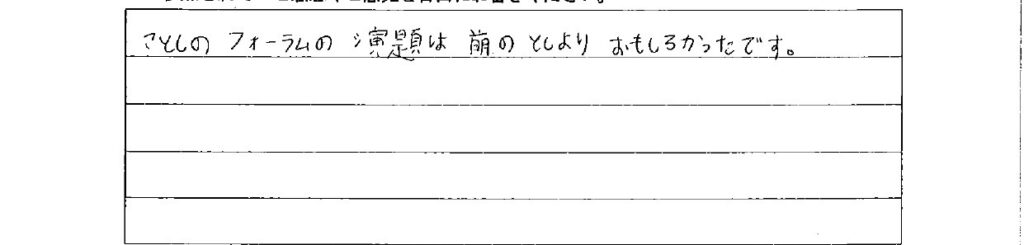 ことしの フォーラムの 演題は 前の としより おもしろかったです。